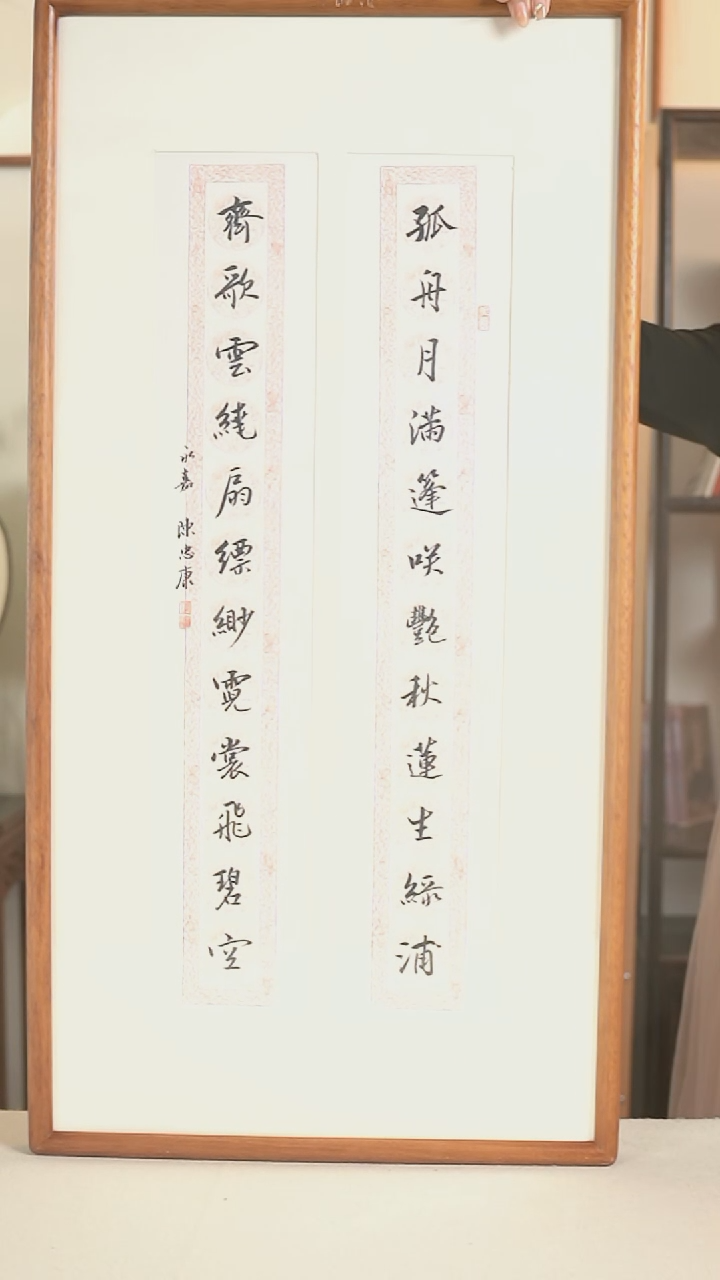 孤舟月滿篷咲艷秋蓮生綠浦
齊歌雲繞扇縹緲霓裳飛碧空
永嘉 陳忠康